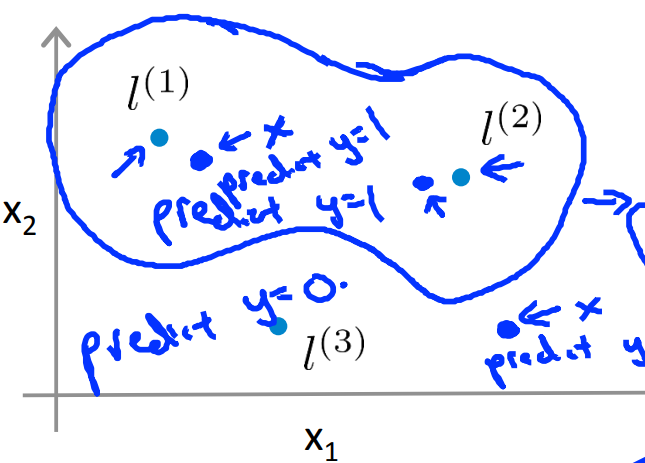 l^{(1)}
x
predict y=1
l^{(2)}
predict y=1
x_2
predict y=0.
l^{(3)}
x
predict y
x_1